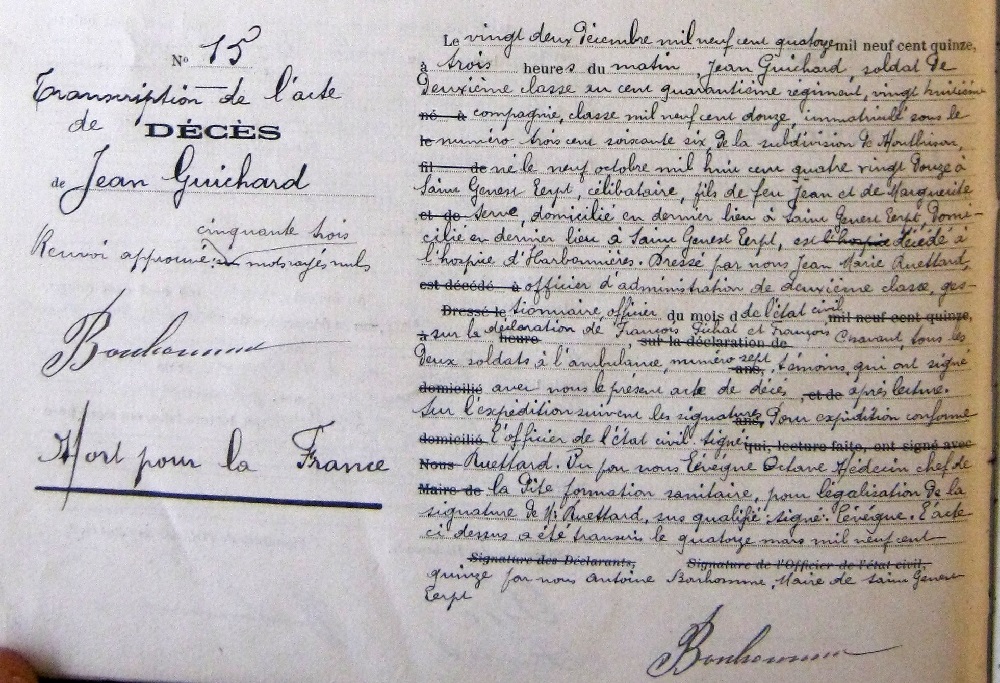 Nº 15
Transcription de l'acte
de DÉCÈS
de Jean Guichard
cinquante trois
Renvoi approuvé: mots rayés nuls
Bonhomme
Mort pour la France
Le vingt deux Décembre mil neuf cent quatorze mil neuf cent quinze,
à trois heures du matin, Jean Guichard, soldat de
deuxième classe au cent quarantième régiment, vingt huitième
né à compagnie, classe mil neuf cent douze, immatriculé sous le
le numéro trois cent soixante six de la subdivision de Montbrison,
fil de né le neuf octobre mil huit cent quatre vingt douze à
Saint Genest Lerpt, célibataire, fils de feu Jean et de Marguerite
et de Serve, domicilié en dernier lieu à Saint Genest Lerpt, Domi-
cilié en dernier lieu à Saint Genest Lerpt, est l'hospice décédé à
l'hospice d'Harbonnières. Dressé par nous Jean Marie Ruettard,
est décédé à officier d'administration de deuxième classe, ges-
Dressé le tionnaire officier du mois d de l'état civil mil neuf cent quinze,
à sur la déclaration de heure François et François Chavant, sur la déclaration de tous les
deux soldats à l'ambulance, numéro sept ans, témoins, qui ont signé
domicilié avec nous le présent acte de décès, et de après lecture.
Sur l'expédition suivent les signatures ans, Pour expédition conforme
domicilié L'officier de l'état civil. Signé: qui, lecture faite, ont signé avec
Nous Ruettard. Vu par nous Lévêque Octave Médecin chef de
Maire de la dite formation sanitaire, pour légalisation de la
signature de Mr Ruettard, sus qualifié. Signé: Lévêque. L'acte
ci dessus a été transcrit le quatorze mars mil neuf cent
Signature des Déclarants, Signature de l'Officier de l'état civil,
quinze par nous Antoine Bonhomme, Maire de Saint Genest
Lerpt
Bonhomme